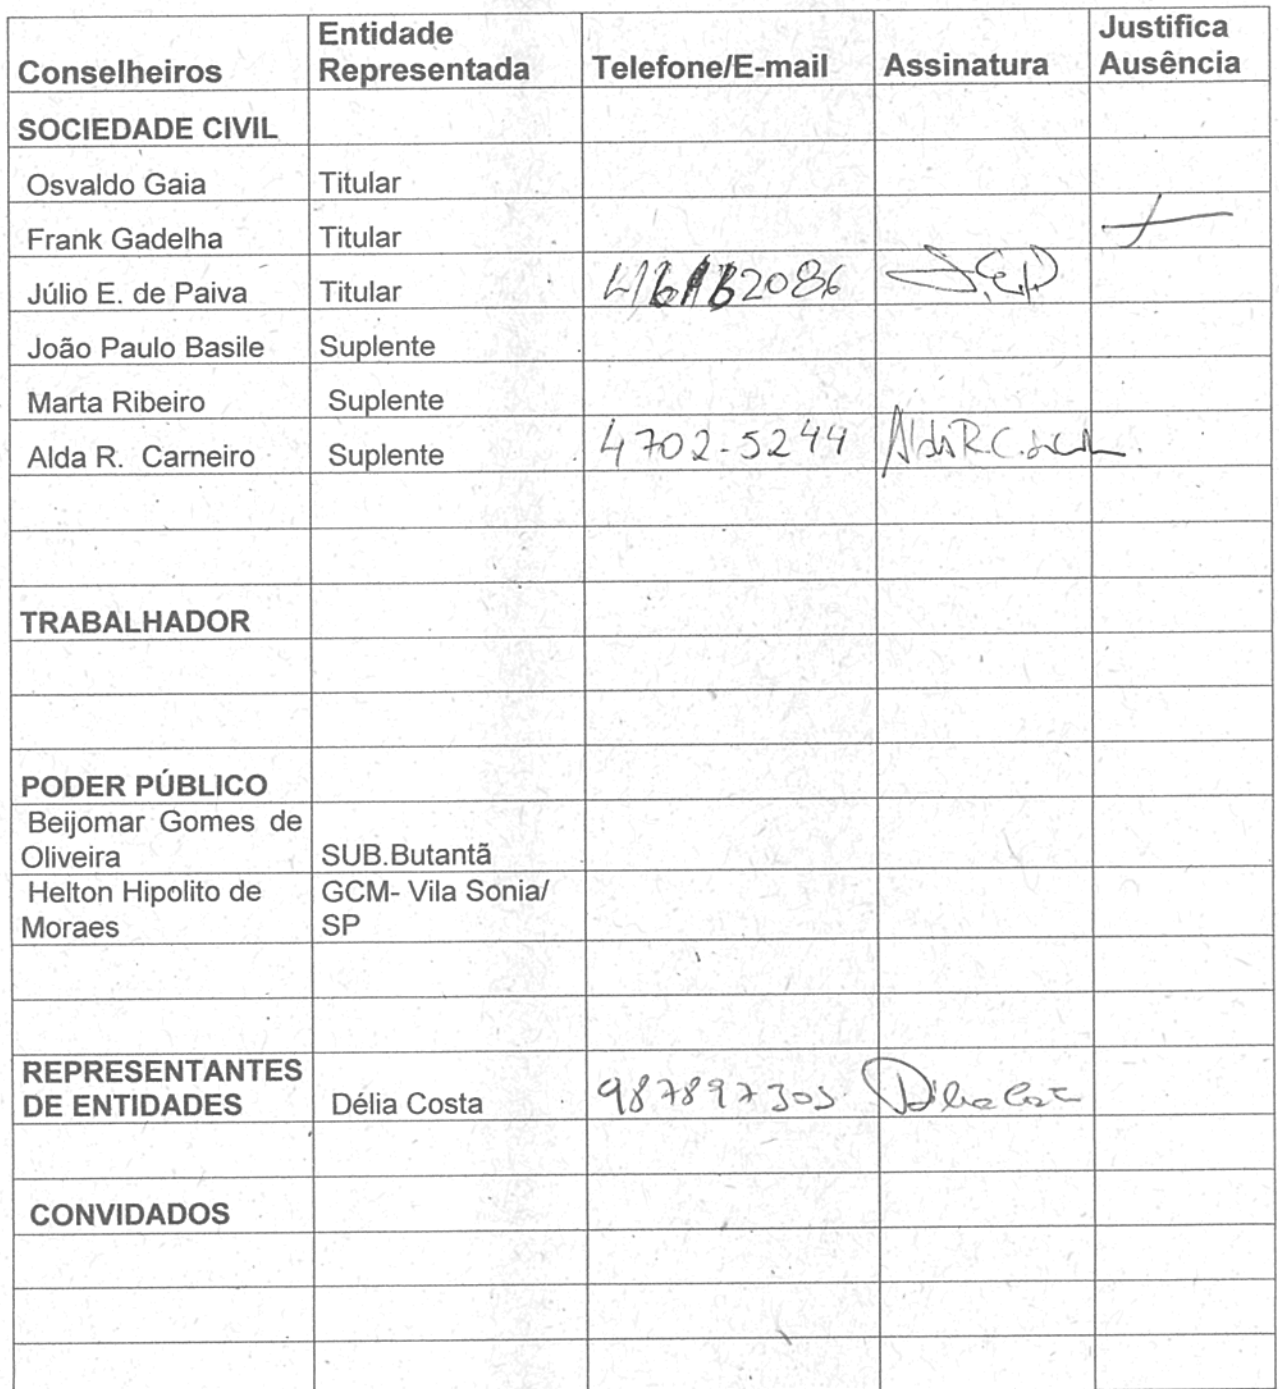 Conselheiros Entidade Representada Telefone/E-mail Assinatura Justifica Ausência
SOCIEDADE CIVIL
Osvaldo Gaia Titular
Frank Gadelha Titular
Júlio E. de Paiva Titular
João Paulo Basile Suplente
Marta Ribeiro Suplente
Alda R. Carneiro Suplente 4702-5244
TRABALHADOR
PODER PÚBLICO
Beijomar Gomes de
Oliveira SUB.Butantã
Helton Hipolito de GCM- Vila Sonia/
Moraes SP
REPRESENTANTES
DE ENTIDADES Délia Costa 987897303 Délia Costa
CONVIDADOS